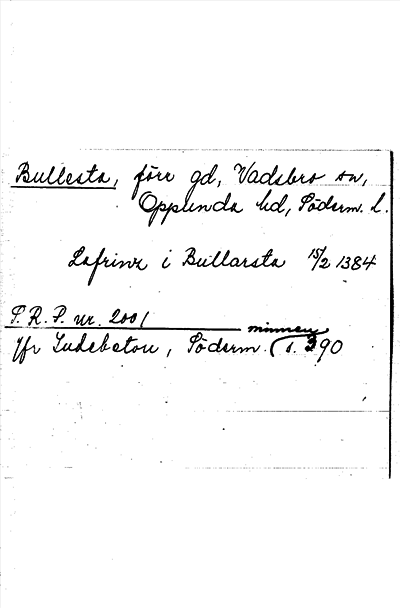 Bullesta, förr gd, Vadsbro sn,
Oppunda hd, Söderm. l.
Lafrinz i Bullarsta 15/2 1384
S.R.P. nr. 2001
minnen
Jfr Ludebeton, Söderm. (s. 390